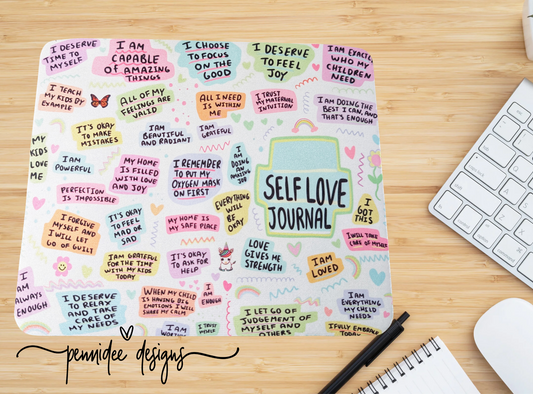 I DESERVE
TIME TO
MYSELF
I AM
CAPABLE
OF AMAZING
THINGS
I CHOOSE
TO FOCUS
ON THE
GOOD
I DESERVE
TO FEEL
JOY
I AM EXACTLY
WHO MY
CHILDREN
NEED
I TEACH
MY KIDS BY
EXAMPLE
ALL OF MY
FEELINGS ARE
VALID
ALL I NEED
IS WITHIN
ME
I TRUST
MY MATERNAL
INTUITION
I AM DOING THE
BEST I CAN, AND
THAT'S ENOUGH
MY
KIDS
LOVE
ME
IT'S OKAY
TO MAKE
MISTAKES
I AM
BEAUTIFUL
AND RADIANT
I AM
GRATEFUL
I AM
POWERFUL
MY HOME
IS FILLED
WITH LOVE
AND JOY
I REMEMBER
TO PUT MY
OXYGEN MASK
ON FIRST
I AM
DOING
AN
AMAZING
JOB
SELF LOVE
JOURNAL
PERFECTION
IS IMPOSSIBLE
EVERYTHING
WILL
BE
OKAY
I
GOT
THIS
I FORGIVE
MYSELF AND
I WILL LET
GO OF GUILT
IT'S OKAY
TO FEEL
MAD OR
SAD
MY HOME IS
MY SAFE PLACE
I WILL TAKE
CARE OF MYSELF
I AM GRATEFUL
FOR THE TIME
WITH MY KIDS
TODAY
IT'S OKAY
TO ASK
FOR HELP
LOVE
GIVES ME
STRENGTH
I AM
LOVED
I
AM
ALWAYS
ENOUGH
I DESERVE
TO RELAX
AND TAKE
CARE OF
MY NEEDS
WHEN MY CHILD
IS HAVING BIG
EMOTIONS I WILL
SHARE MY CALM
I
AM
ENOUGH
I AM
EVERYTHING
MY CHILD
NEEDS
I LET GO OF
JUDGEMENT OF
MYSELF AND
OTHERS
I AM
I TRUST
MYSELF
I FULLY EMBRACE
TODAY
pennidee designs